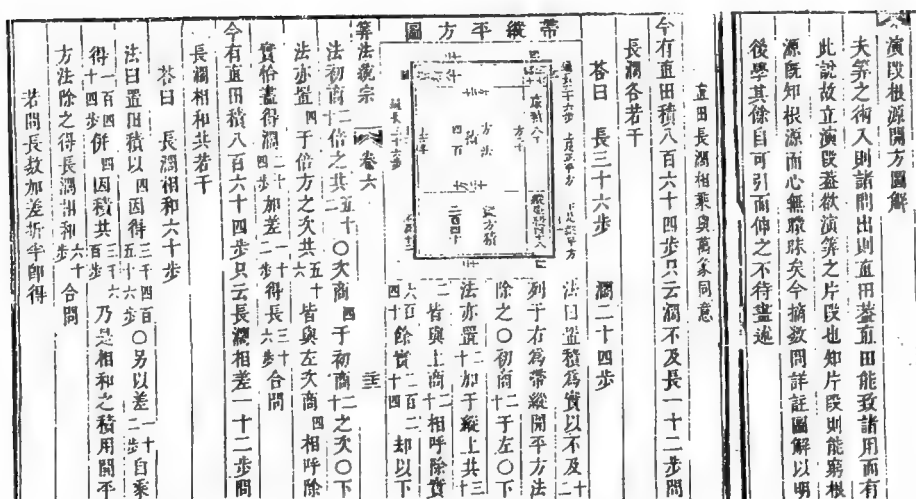 演段根源開方圖解
夫筭之術入則諸問出則直田蓋直田能致諸用而有
此說故立演段蓋欲演筭之片段也知片段則能窮根
源既知根源而心無矇昧矣今摘數問詳註圖解以明
後學其餘自可引而伸之不待盡述
直田長濶相乘與萬象同意
今有直田積八百六十四步只云濶不及長一十二步問
長濶各若干
荅曰 長三十六步 濶二十四步
法曰置積爲實以不及一十二步
列于右爲帶縱開平方法
除之〇初商二十于左〇下
法亦置二十加于縱上共三十
二皆與上商二十相呼除實
六百四十餘實二百二十四却以下
帶縱平方圖
方法
積
四百
筭法統宗
卷六
法初商二十倍之共五十二〇次商四于初商二十之次〇下
法亦置四于倍方之次共五十六皆與左次商四相呼除
實恰盡得濶二十四步加差一十二步得長三十六步合問
今有直田積八百六十四步只云長濶相差一十二步問
長濶相和共若干
荅曰 長濶相和六十步
法曰置田積以四因得三千四百五十六步〇另以差一十二步自乘
得一百四十四步併四因積共三千六百步乃是相和之積用開平
方法除之得長濶相和六十步合問
若問長數加差折半即得